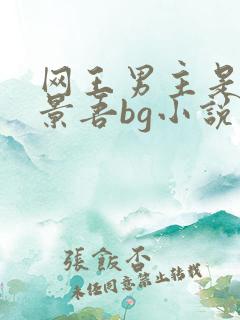 网王男主
景吾bg小説
張飯否
未經同意禁止转载